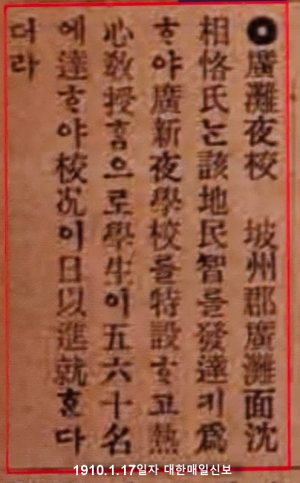 ◉廣灘夜校 坡州郡廣灘面沈
相恪氏는該地民智를發達키爲
ᄒᆞ야廣新夜學校를特設ᄒᆞ고熱
心敎授홈으로學生이五六十名
에達ᄒᆞ야校況이日以進就ᄒᆞᆫ다
더라
1910.1.17일자 대한매일신보